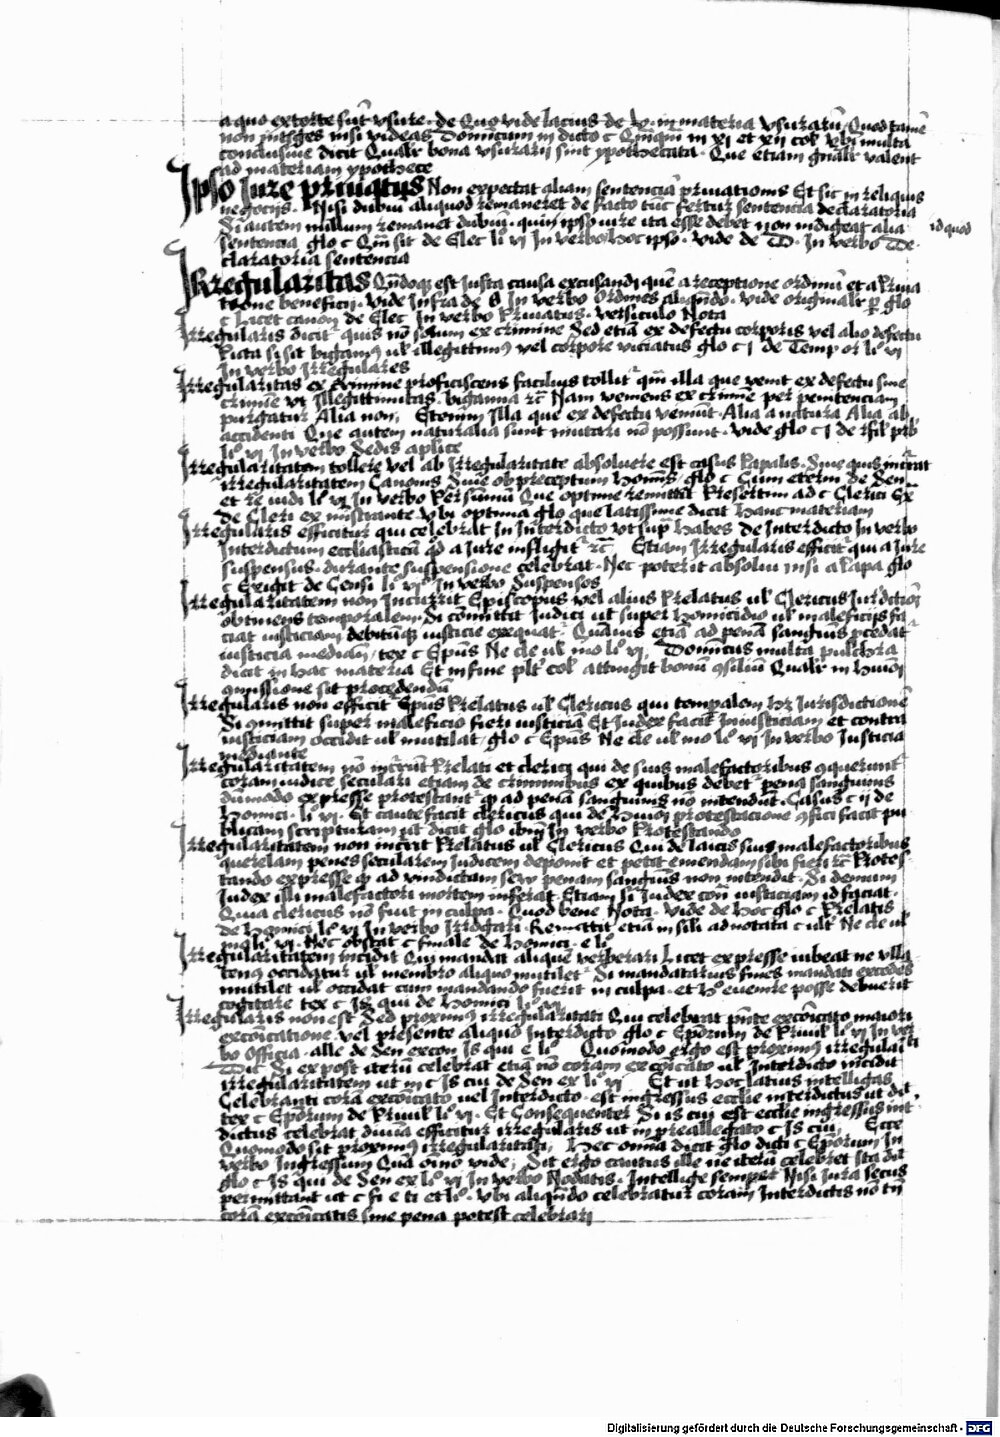 a quo extorte sūt vsure · de Quo vide lacius de V · in materia vsurarū / Quod tamē
non intelliges nisi videas Dominicum in dicto c Qm̄qm̄ in xj et xij col vbi multa
conclusiue dicit Qualr bona vsurarij sint ypothecata · Que etiam gn̄alr valent
ad materiam ypothece
Ipso Jure priuatus Non expectat aliam sentenciā priuationis Et sic in reliquis
negocijs · Nisi dubiū aliquod remaneret de facto tūc fertur sentencia declaratoria
Si autem nullum remanet dubiū · quin ipso iure ita esse debet non indigeat alia
id quod
sentencia glo c Qm̄ sit de Elec li° vj In verbo hoc ipso · vide de D · In verbo De
claratoria sentencia
Irregularitas Qn̄doqꝫ est Justa causa excusandi quē a receptione ordinū et a Priua
tione beneficij · Vide Infra de O In verbo Ordines aliqn̄do · vide originalr ꝑ glo
c Licet canon de Elec In verbo Priuatus · versiculo Nota
Irregularis dicit' quis nō solum ex crimine Sed etiā ex defectu corporis vel alio defectu
Puta si sit bigamꝰ ul' illegittimꝰ vel corpore viciatus glo c j de Temp or li° vj
In verbo Irregulares
Irregularitas ex crimine proficiscens facilius tollit' qm̄ illa que venit ex defectu siue
crimīe vt Illegittimitas · bigamia rc̄ Nam veniens ex crimīe per penitenciam
purgatur Alia non / Etenim Illa que ex defectu veniūt · Alia a natura Alia ab
accidenti Que autem naturalia sunt mutari nō possunt · vide glo c j de
li° vj In verbo Sedis aplice
Irregularitatem tollere vel ab Irregularitate absoluere est casus Papalis · Siue quis incurrat
irregularitatem Canonis Siue ob preceptum hominis / glo c Cum eterni de Sen
et re iudi li° vj In verbo Que optime remittit Presertim ad c Clerici Ex
De Cleri ex ministrante vbi optima glo que latissime dicit hanc materiam
Irregularis efficitur qui celebrat in Interdicto vt sup̄ habes de Interdicto In verbo
Interdictum ecclīasticū qd a Jure infligit' rc̄ / Etiam Irregularis efficit' qui a Jure
suspensus · durante suspensione celebrat · Nec poterit absolui nisi a Papa glo
c Exigit de Censi li° vj° In verbo Suspensos
Irregularitatem non Incurrit Episcopus vel alius Prelatus ul' Clericus Jurdictōȝ
obtinens temporalem Si comittit Judici ut super homicidio ul' maleficijs fa
ciat iusticiam debitūqꝫ iusticie exequat' · Quāuis etiā ad penā sanguīs ꝓcedat
iusticia mediāte / tex c Epūs Ne cle ul' mo li° vj / Dominicus multa pulchra
dicit in hac materia Et in fine pl't' col' attingit bonū ꝯsiliū Qualr in huōi
ꝯmissione sit procedendū
Irregularis non efficit' Epūs Prelatus ul' Clericus qui temporalem hꝫ Jurisdictionē
Si ꝯmittit super maleficio fieri iusticiā Et Judex facit Iniusticiam et contra
iusticiam occidit ul' mutilat / glo c Epūs Ne cle ul' mo li° vj In verbo Justicia
mediante
Irregularitatem nō incurrūt Prelati et clerici qui de suis malefactoribus ꝯquerunt'
coram iudice seculari etiam de criminibus ex quibus debet' pena sanguinis
dūmodo expresse protestant' ꝙ ad penā sanguinis nō intendūt · Casus c ij de
homici · li° vj · Et caute facit clericus qui de huōi protestacione ꝯfici facit pu
blicam scripturam vt dicit glo ibm̄ In verbo Protestando
Irregularitatem non incurit Prelatus ul' Clericus Qui de laicis suis malefactoribus
querelam penes secularem Judicem deponit et petit emendam sibi fieri rc̄ Protes
tando expresse ꝙ ad vindictam seu penam sanguīs non intendit · Si demum
Judex illi malefactori mortem inferat Etiam si Judex cōtra iusticiam id faciat ·
Quia clericus nō fuit in culpa · Quod bene Nota · Vide de hoc glo c Prelatis
de homici li° vj In verbo Irrogari · Remittit etiā in sili ad notata c ult' Ne cle ul'
mo li° vj · Nec obstat c finale de homici · e li°
Irregularitatem incidit Qui mandat aliquē verberari Licet expresse iubeat ne ulla
tenꝰ occidatur ul' membro aliquo mutilet' Si mandatarius fines mandati excedēs
mutilet ul' occidat cum mandando fuerit in culpa · et h° euenire posse debuerit
cogitare tex c Is qui de homici li° vj
Irregularis non est Sed proximꝰ irregularitati Qui celebrat pn̄te excōicato maiori
excōicatione vel presente aliquo Interdicto glo c Ep̄orum de Priuil li° vj In ver
bo Officia · alle de Sen excom Is qui e li° Quomodo ergo est proximꝰ irregulari
ti
Dic Si ex post iterū celebrat etiā nō coram excōicato ul' Interdicto incidit
irregularitatem ut in c Is cui de Sen ex li° vj Et ut hoc latius intelligas
Celebranti corā excōicato uel Interdicto · est ingressus ecclie interdictus ut dīt
tex c Ep̄orum de Priuil li° vj · Et Consequenter Si is cui est ecclie ingressus int
dictus celebrat diuina efficitur irregularis ut in preallegato c Is cui / Ecce
Quomodo sit proximꝰ irregularitati / Hec omīa dicit glo dicti c Ep̄orum In
verbo Ingressum Quā oīno vide / Sit ergo cautus ille ne iterū celebret Ita dīt
glo c Is qui de Sen ex li° vj In verbo Notatis · Intellige semper Nisi Jura secus
permittant ut c fi e ti et li° · Vbi aliqn̄do celebratur coram Interdictis nō tn̄
corā excōicatis sine pena potest celebrari
Digitalisierung gefördert durch die Deutsche Forschungsgemeinschaft - DFG